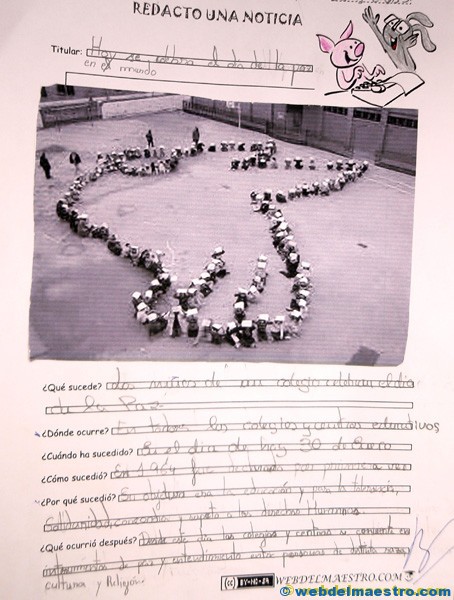 REDACTO UNA NOTICIA
Titular: Hoy se celebra el día de la paz
en el mundo
¿Qué sucede? Los niños de un colegio celebran el día
de la Paz
¿Dónde ocurre? En todos los colegios y centros educativos
¿Cuándo ha sucedido? En el día de hoy 30 de Enero
¿Cómo sucedió? En 1964 fue por primera vez
¿Por qué sucedió? Su objetivo era la educación y para la tolerancia,
Solidaridad, concordia y respeto a los derechos Humanos.
¿Qué ocurrió después? Desde este día los colegios y centros se convierte en
instrumentos de paz y entendimiento entre personas de distinta raza,
cultura y Religión.
(cc) BY-NC-SA WEBDELMAESTRO.COM
© webdelmaestro.com